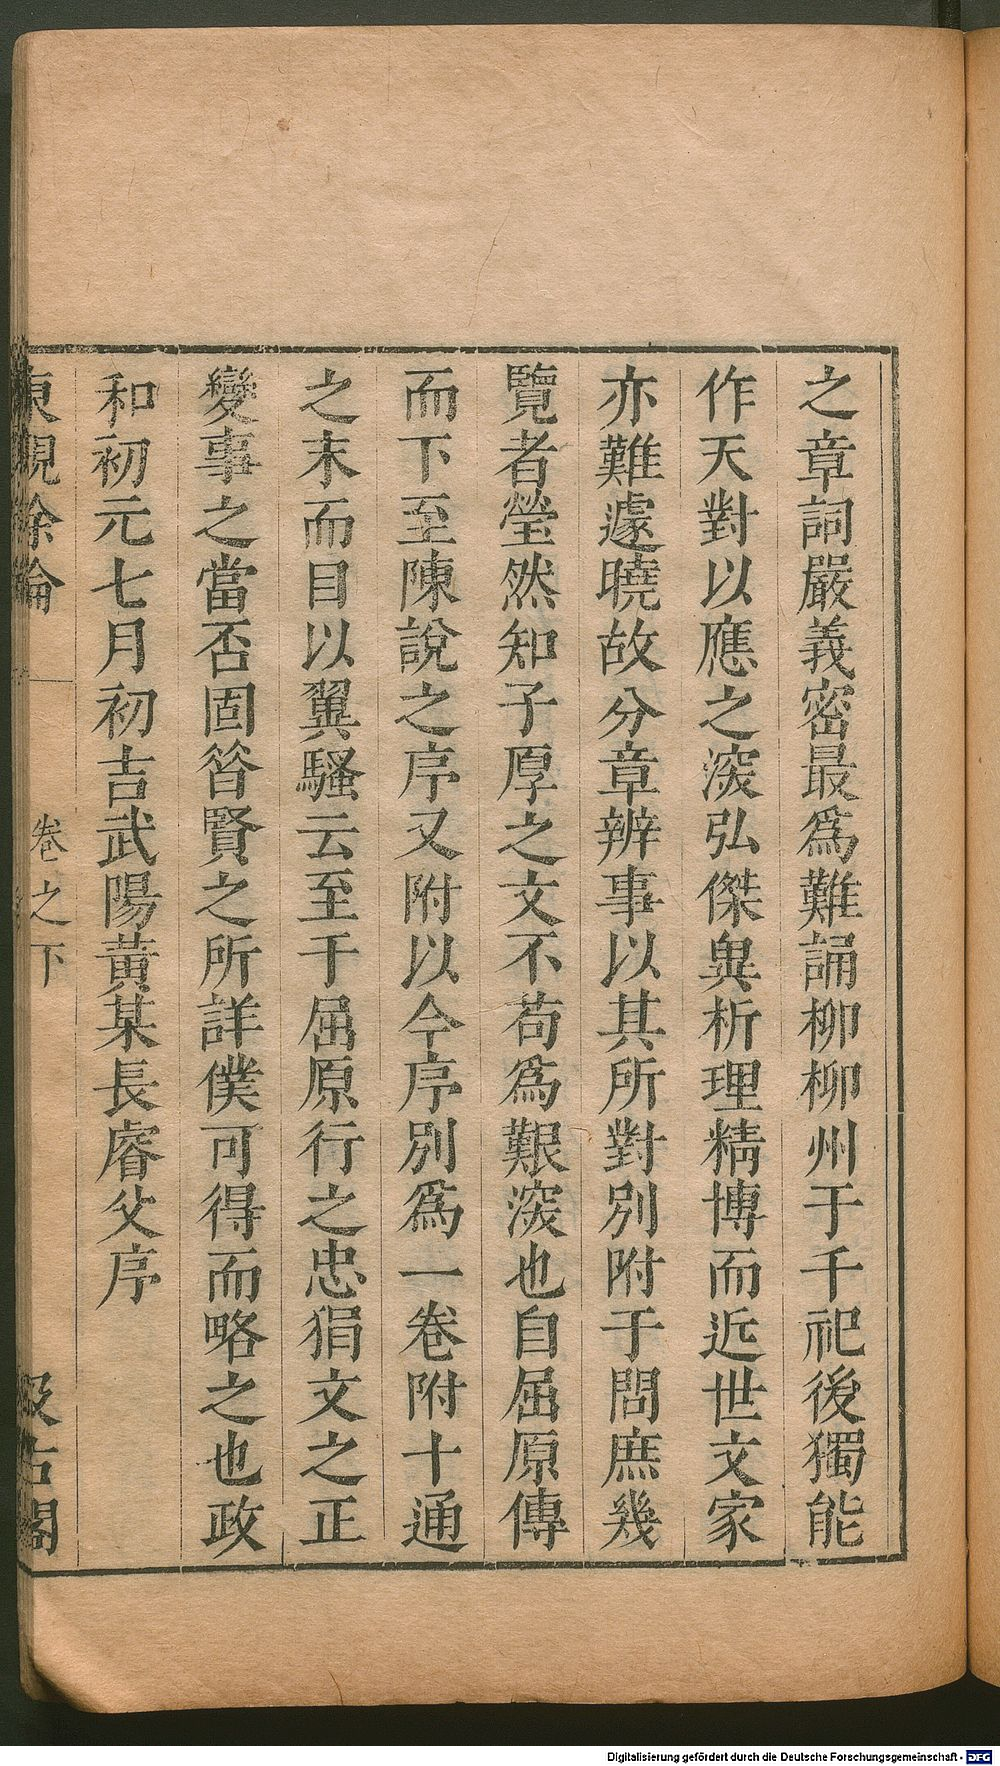 之章詞嚴義密最爲難誦柳柳州于千祀後獨能
作天對以應之湥弘傑㒸析理精博而近世文家
亦難遽曉故分章辨事以其所對別附于問庶幾
覽者瑩然知子厚之文不苟爲艱湥也自屈原傳
而下至陳說之序又附以今序別爲一卷附十通
之末而目以翼騷云至千屈原行之忠狷文之正
變事之當否固昝賢之所詳僕可得而略之也政
和初元七月初吉武陽黃某長睿父序
東觀餘論 卷之下 汲古閣
Digitalisierung gefördert durch die Deutsche Forschungsgemeinschaft - DFG